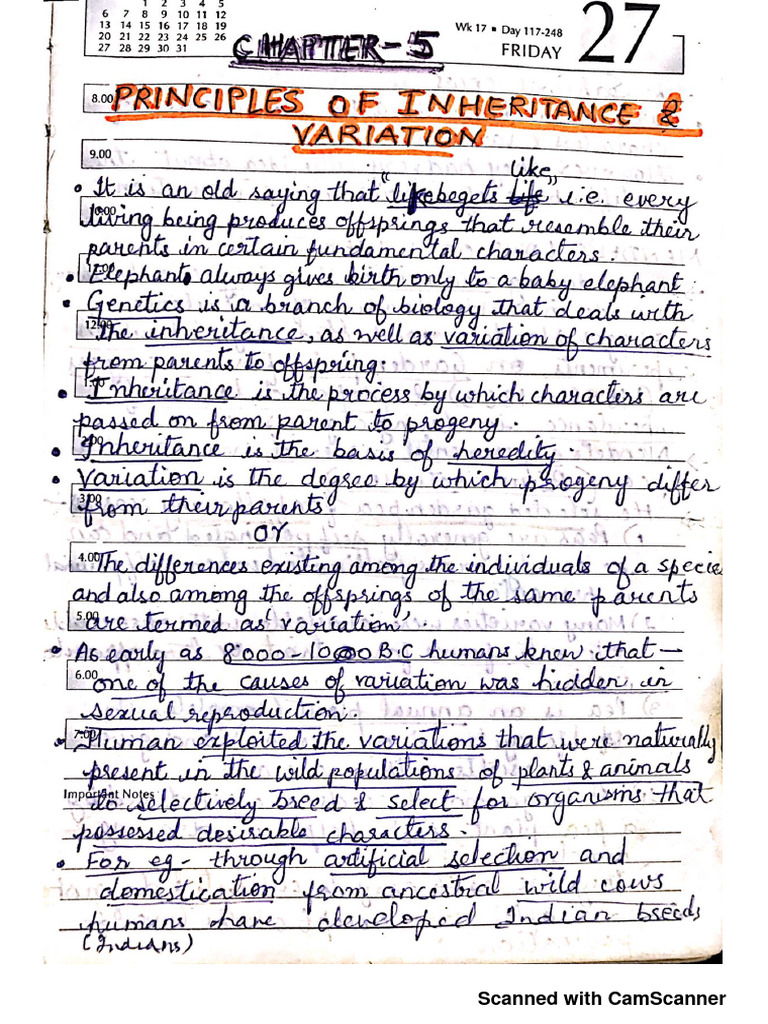 1 2 3 4 5
6 7 8 9 10 11 12
13 14 15 16 17 18 19
20 21 22 23 24 25 26
27 28 29 30 31
Wk 17 ▪ Day 117-248
FRIDAY
27
CHAPTER-5
8.00 PRINCIPLES OF INHERITANCE &
VARIATION
9.00
like
• It is an old saying that "like begets life" i.e. every
living being produces offsprings that resemble their
parents in certain fundamental characters.
• Elephant always gives birth only to a baby elephant.
• Genetics is a branch of biology that deals with
12.00 the inheritance, as well as variation of characters
from parents to offspring.
• Inheritance is the process by which characters are
passed on from parent to progeny.
• Inheritance is the basis of heredity.
• Variation is the degree by which progeny differ
3.00 from their parents
or
4.00 The differences existing among the individuals of a specie
and also among the offsprings of the same parents
5.00 are termed as 'variation'.
• As early as 8000-1000 B.C humans knew that —
6.00 one of the causes of variation was hidden in
sexual reproduction.
7.00 • Human exploited the variations that were naturally
present in the wild populations of plants & animals
Important Notes to selectively breed & select for organisms that
possessed desirable characters.
• For eg- through artificial selection and
domestication from ancestral wild cows
humans have developed Indian breeds
(Indians)
Scanned with CamScanner